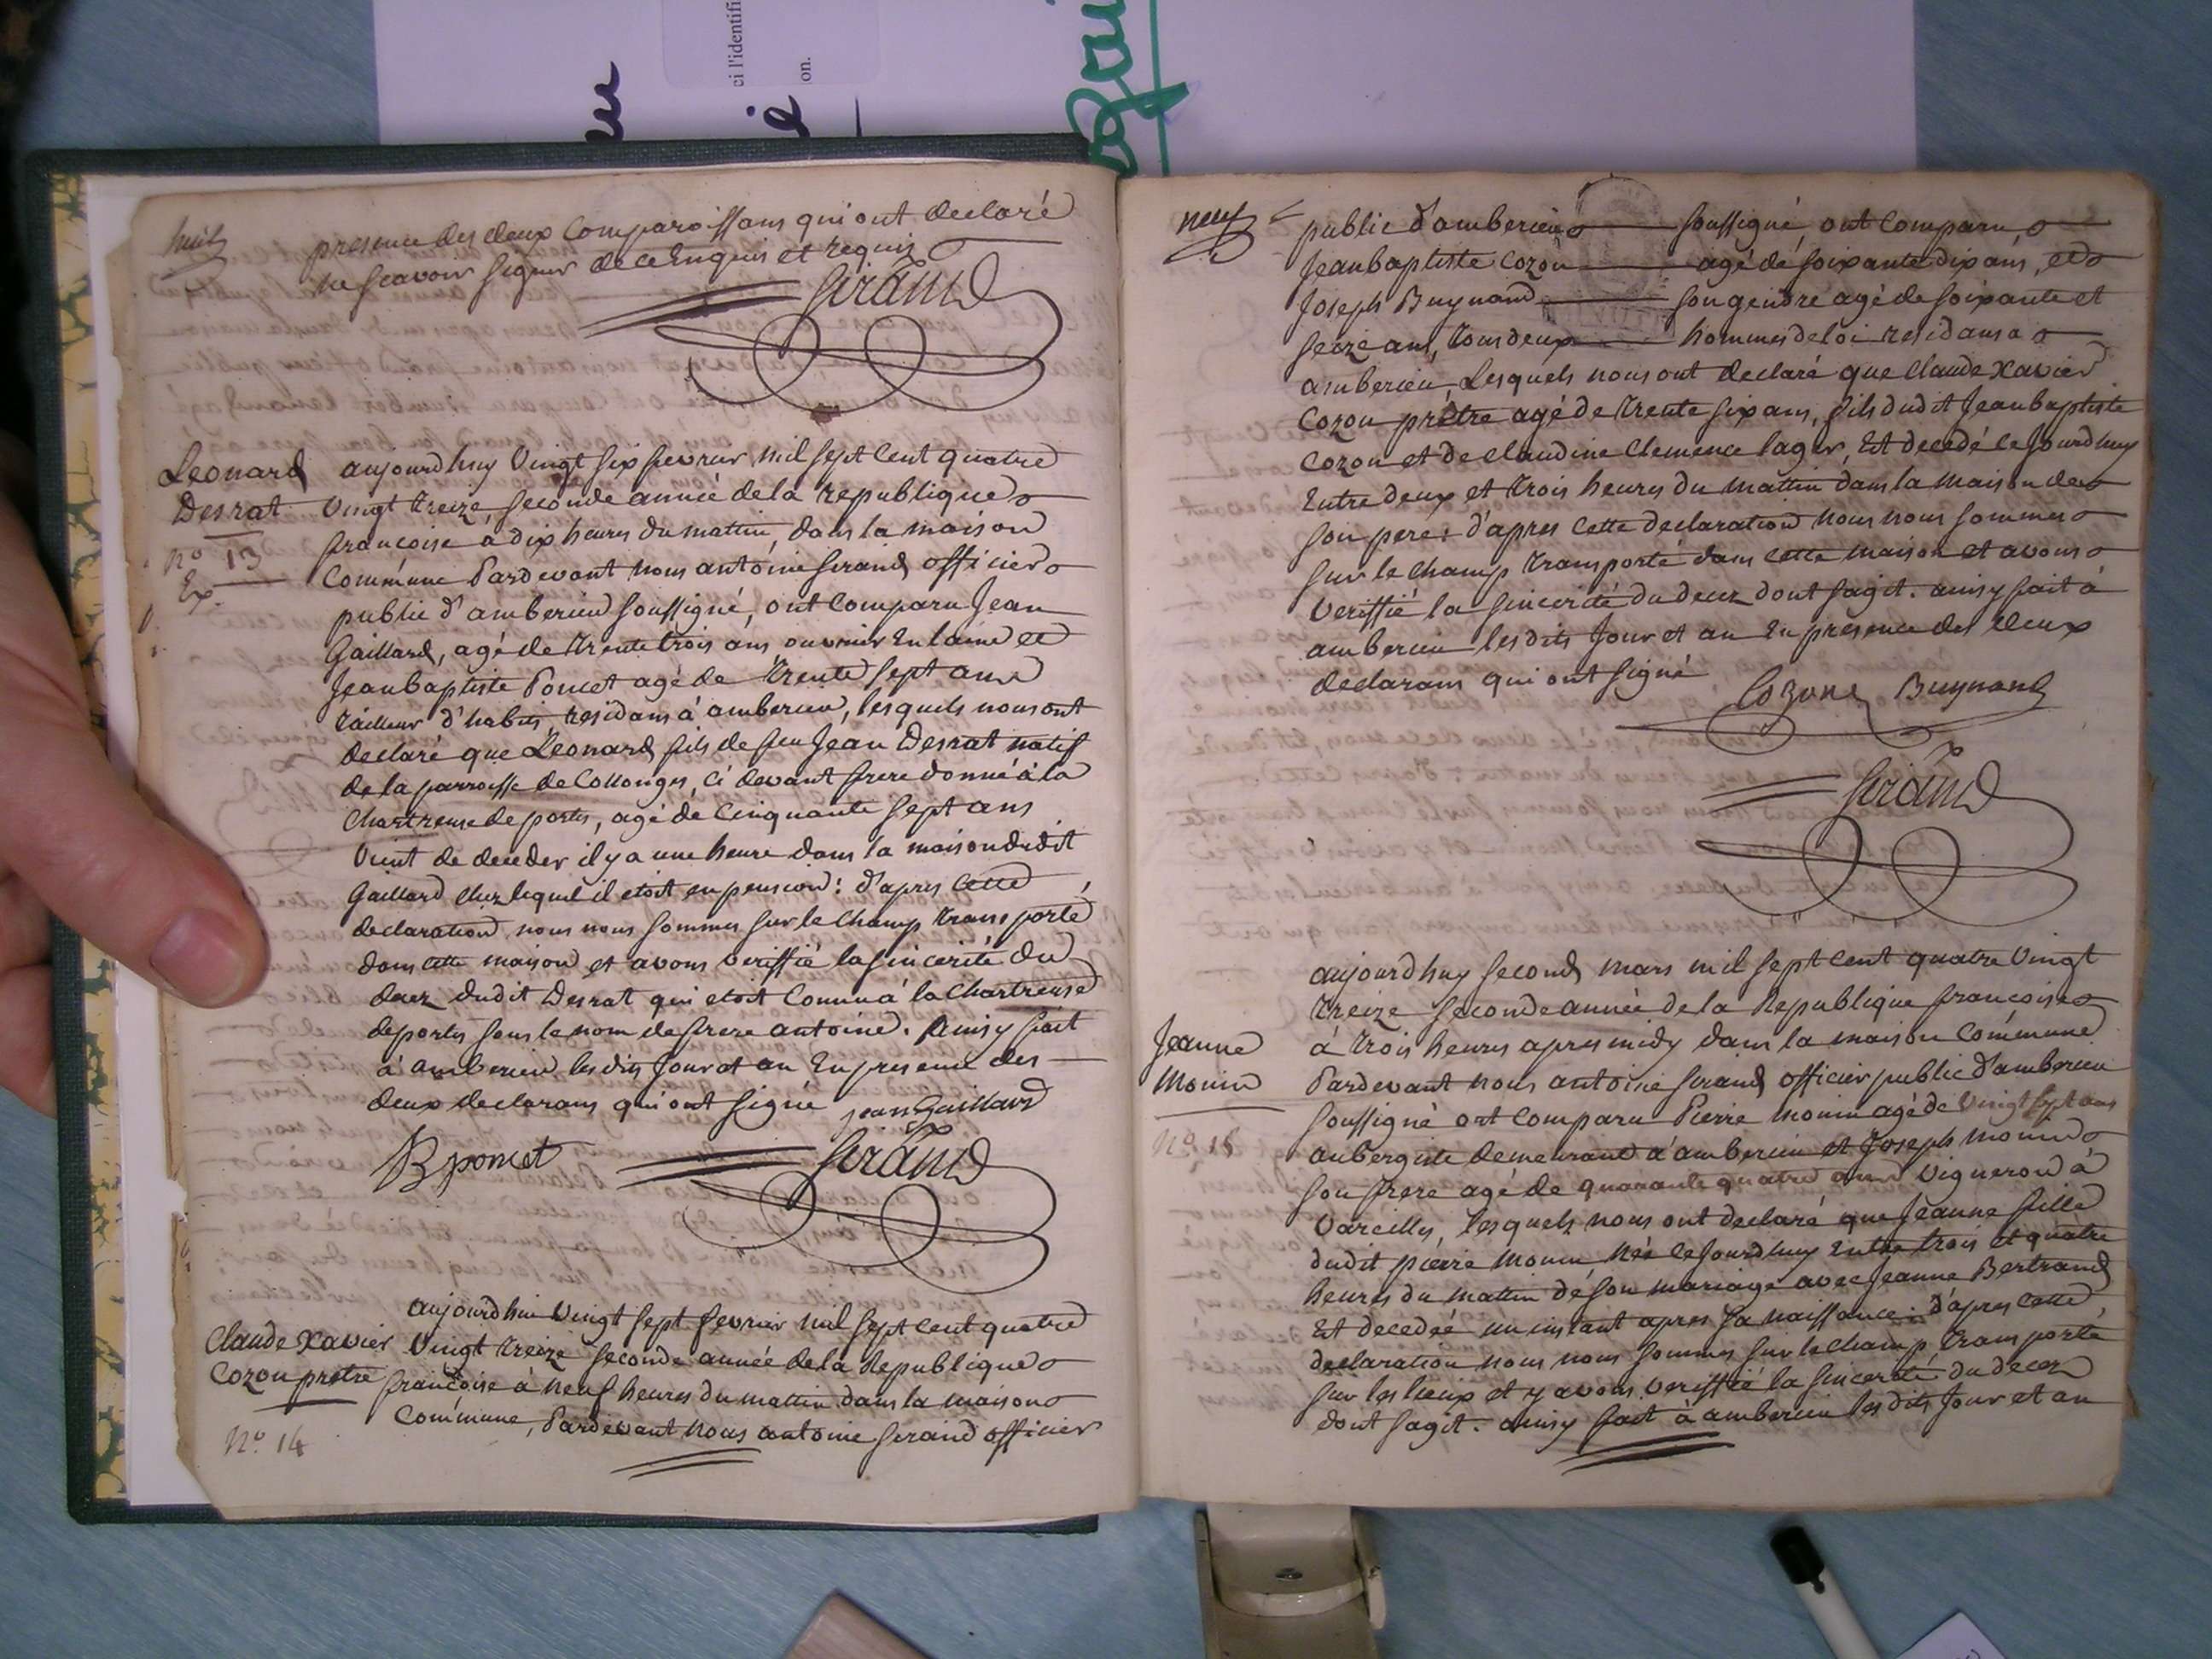 ci l'identifi
on.
huit
presence des deux Comparoissans qui ont declaré
ne scavoir signer de ce Enquis et requis
Sirand
Leonard
Desrat
N° 13
Ex.
aujourdhuy Vingt six fevrier mil sept Cent quatre
Vingt treize, seconde année de la republique
francoise à dix heures du mattin, dans la maison
Commune Pardevant nous antoine Sirand officier
public d'amberieu soussigné, ont Comparu Jean
Gaillard, agé de trente trois ans, ouvrier En laine et
Jean baptiste Poncet agé de trente sept ans
tailleur d'habits residans à amberieu, lesquels nous ont
declaré que Leonard fils de feu Jean Desrat natif
de la parroisse de Collonges, Ci devant frere donné à la
Chartreuse de portes, agé de Cinquante sept ans
Vient de deceder il y a une heure dans la maison dudit
Gaillard chez lequel il etoit en pension: d'apres Cette
declaration nous nous sommes sur le Champ transporté
dans cette maison et avons veriffié la sincerité du
decez dudit Desrat qui etoit Connu à la Chartreuse
de portes sous le nom de frere antoine. Ainsy fait
à amberieu lesdits Jour et an En presence des
deux declarans qui ont signé Jean Gaillard
JB poncet Sirand
Claude Xavier
Cozon prêtre
N° 14
aujourdhui Vingt sept fevrier mil sept Cent quatre
Vingt treize seconde année de la Republique
francoise à neuf heures du mattin dans la maison
Commune, Pardevant Nous antoine Sirand officier
neuf
public d'amberieu soussigné, ont Comparu,
Jean baptiste Cozon agé de soixante dix ans, et
Joseph Buynand son gendre agé de soixante et
seize ans, tous deux hommes de loi residans a
amberieu, Lesquels nous ont declaré que Claude Xavier
Cozon prêtre agé de trente six ans, fils dudit Jean baptiste
Cozon et de Claudine Clemence lager, Est decedé Cejourdhuy
Entre deux et trois heures du mattin dans la maison de
son pere: d'apres Cette declaration nous nous sommes
sur le Champ transporté dans cette maison et avons
Veriffié la sincerité du decez dont sagit. ainsy fait à
amberieu lesdits Jour et an En presence des deux
declarans qui ont signé
Cozon Buynand
Sirand
Jeanne
Monin
N° 15
aujourdhuy second mars mil sept Cent quatre Vingt
treize seconde année de la Republique francoise
à trois heures apres midy dans la maison Commune
Pardevant nous antoine Sirand officier public d'amberieu
soussigné ont Comparu Pierre Monin agé de Vingt sept ans
aubergiste demeurant à amberieu et Joseph monin
son frere agé de quarante quatre ans Vigneron à
Vareilles, lesquels nous ont declaré que Jeanne fille
dudit pierre Monin Née Cejourdhuy Entre trois et quatre
heures du mattin de son mariage avec Jeanne Bertrand
Est decedée un instant apres sa naissance: d'apres Cette
declaration nous nous sommes sur le Champ transporté
sur les lieux et y avons veriffié la sincerité du decez
dont sagit. ainsy fait à amberieu lesdits Jour et an